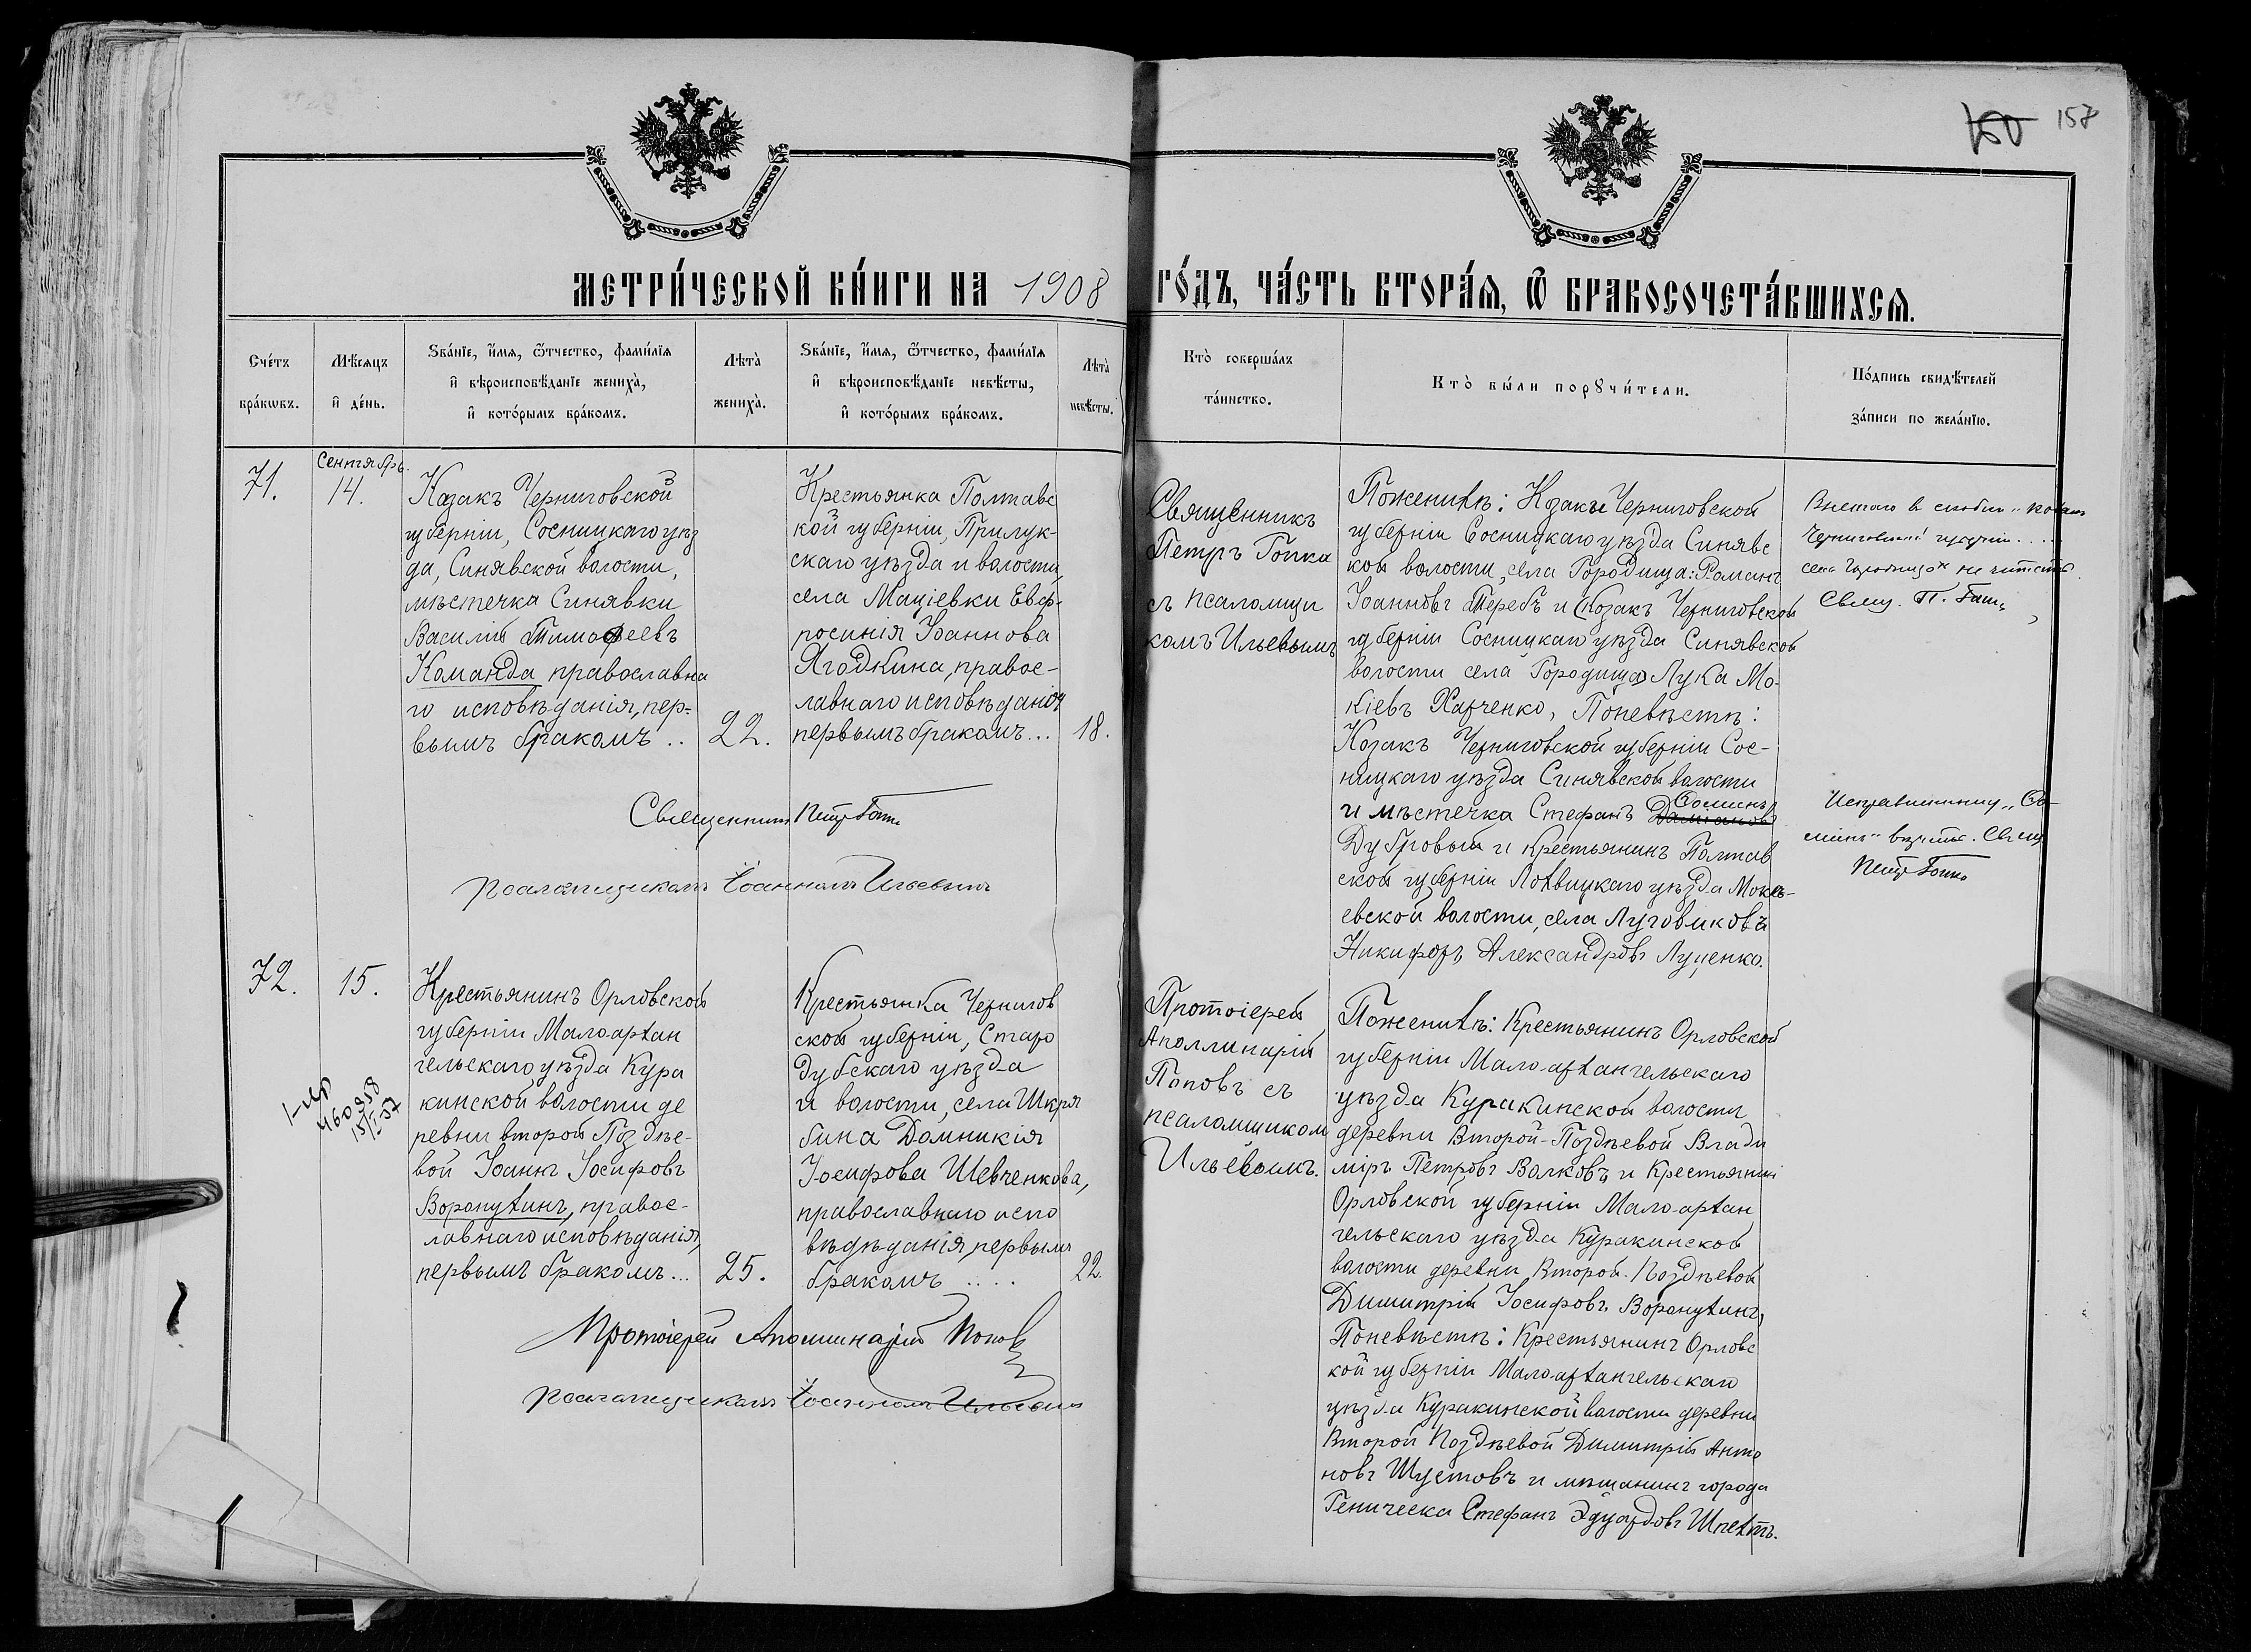 150 158
МЕТРИ́ЧЕСКОЙ КНИ́ГИ НА 1908 ГО́ДЪ, ЧА́СТЬ ВТОРА́Ѧ, Ѡ БРАКОСОЧЕТА́ВШИХСѦ.
Сче́тъ
бра́кωвъ.
Мѣ́сѧцъ
и҆ де́нь.
Ѕва́нїе, и҆́мѧ, ѻ҆́тчество, фами́лїѧ
и҆ вѣроисповѣ́данїе жениха̀,
и҆ кото́рымъ бра́комъ.
Лѣта̀
жениха̀.
Ѕва́нїе, и҆́мѧ, ѻ҆́тчество, фами́лїѧ
и҆ вѣроисповѣ́данїе невѣ́сты,
и҆ кото́рымъ бра́комъ.
Лѣта̀
невѣ́сты.
Кто̀ соверша́лъ
та́инство.
Кто̀ бы́ли порꙋчи́тели.
По́дпись свидѣ́телей
за́писи по жела́нїю.
71.
Сентябрь.
14.
Козакъ Черниговской
губерніи, Сосницкаго уѣз
да, Синявской волости,
мѣстечка Синявки
Василій Тимофеевъ
Команда православна
го исповѣданія, пер-
вымъ бракомъ ..
22.
Крестьянка Полтавс
кой губерніи, Прилук-
скаго уѣзда и волости,
села Маціевки Евф-
росинія Іоаннова
Ягодкина, правос-
лавнаго исповѣданія
первымъ бракомъ...
18.
Священникъ
Петръ Гопка
съ псаломщи
комъ Ильевымъ
По женихѣ: Козакъ Черниговской
губерніи Сосницкаго уѣзда Синявс
кой волости, села Городища: Романъ
Іоанновъ Теребъ и Козакъ Черниговской
губерніи Сосницкаго уѣзда Синявской
волости села Городища Лука Мо-
кіевъ Харченко, По невѣстѣ:
Козакъ Черниговской губерніи Сос-
ницкаго уѣзда Синявской волости
и мѣстечка Стефанъ Даміановъ
Ѳоминъ
Дубровый и Крестьянинъ Полтав
ской губерніи Лохвицкаго уѣзда Мокѣ-
евской волости, села Луговиковъ
Никифоръ Александровъ Луценко.
Черниговской губерніи....
села Городища" не читать
Свящ. П. Гопка
"Ѳо-
минъ" вѣрить. Свящ
Петръ Гопка
Священникъ Петръ Гопка
Псаломщикомъ Іоанномъ Ильевымъ
72.
15.
460958
Крестьянинъ Орловской
губерніи Малоархан
гельскаго уѣзда Кура
кинской волости де
ревни второй Позднѣе-
вой Іоаннъ Іосифовъ
Воропухинъ, правос-
лавнаго исповѣданія,
первымъ бракомъ...
25.
Крестьянка Чернигов
ской губерніи, Старо
дубскаго уѣзда
и волости, села Шкря
бина Домникія
Іосифова Шевченкова,
православнаго испо
вѣдѣданія, первымъ
бракомъ ....
22.
Протоіерей
Аполлинарій
Поповъ съ
псаломщиком
Ильевымъ.
По женихѣ: Крестьянинъ Орловской
губерніи Мало-архангельскаго
уѣзда Куракинской волости
деревни Второй-Позднѣевой Влади
міръ Петровъ Волковъ и Крестьянинъ
Орловской губерніи Мало-архан
гельскаго уѣзда Куракинской
волости деревни Второй-Позднѣевой
Димитрій Іосифовъ Воропухинъ,
По невѣстѣ: Крестьянинъ Орловс
кой губерніи Мало-архангельскаго
уѣзда Куракинской волости деревни
Второй Позднѣевой Димитрій Анто
новъ Шустовъ и мѣщанинъ города
Геническа Стефанъ Эдуардовъ Шпехтъ.
Протоіерей Аполлинарій Поповъ
Псаломщикомъ Іоанномъ Ильевымъ